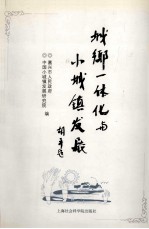 城乡一体化与
小城镇发展
胡平题
◎嘉兴市人民政府
◎中国小城镇发展研究院
编
上海社会科学院出版社